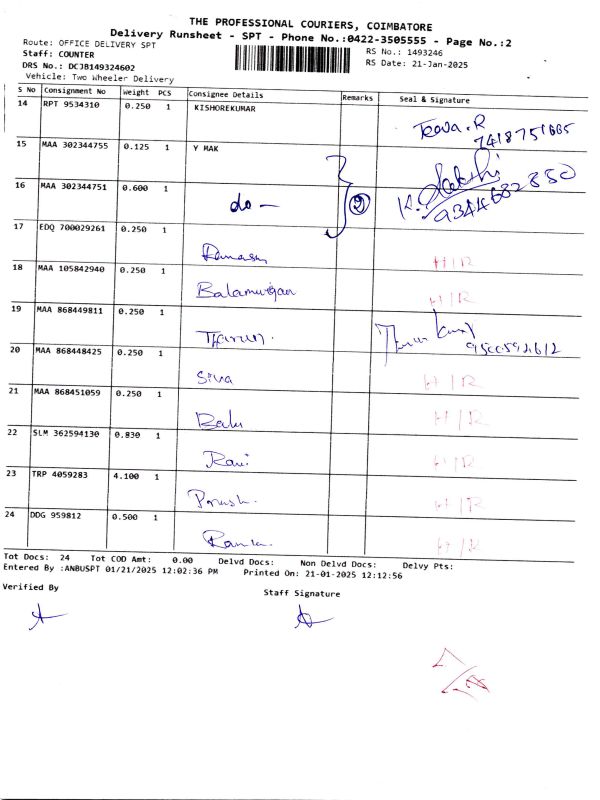 THE PROFESSIONAL COURIERS, COIMBATORE
Delivery Runsheet - SPT - Phone No.:0422-3505555 - Page No.:2
Route: OFFICE DELIVERY SPT
RS No.: 1493246
Staff: COUNTER
RS Date: 21-Jan-2025
DRS No.: DCJB149324602
Vehicle: Two Wheeler Delivery
S No Consignment No Weight PCS Consignee Details Remarks Seal & Signature
14 RPT 9534310 0.250 1 KISHOREKUMAR
15 MAA 302344755 0.125 1 Y MAK
16 MAA 302344751 0.600 1 do - 2
17 EDQ 700029261 0.250 1 H/R
18 MAA 105842940 0.250 1 Balamurugan H/R
19 MAA 868449811 0.250 1 Tharun.
20 MAA 868448425 0.250 1 Siva H/R
21 MAA 868451059 0.250 1 Balu H/R
22 SLM 362594130 0.830 1 Ravi H/R
23 TRP 4059283 4.100 1 H/R
24 DDG 959812 0.500 1 H/R
Tot Docs: 24 Tot COD Amt: 0.00 Delvd Docs: Non Delvd Docs: Delvy Pts:
Entered By :ANBUSPT 01/21/2025 12:02:36 PM Printed On: 21-01-2025 12:12:56
Verified By
Staff Signature